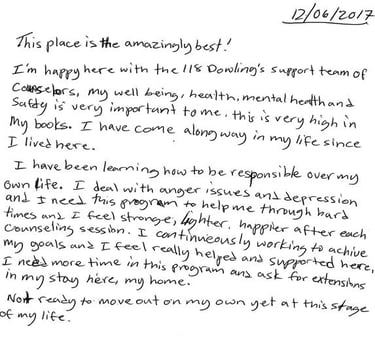 12/06/2017
This place is the amazingly best!
I'm happy here with the 118 Dowling's support team of
Counselors, my well being, health, mental health and
Safety is very important to me. this is very high in
My books. I have come along way in my life since
I lived here.
I have been learning how to be responsible over my
own life. I deal with anger issues and depression
and I need this program to help me through hard
times and I feel stronge, lighter, happier after each
counseling session. I continueously working to achive
my goals and I feel really helped and supported here,
I need more time in this program and ask for extensions
in my stay here, my home.
Not ready to move out on my own yet at this stage
of my life.